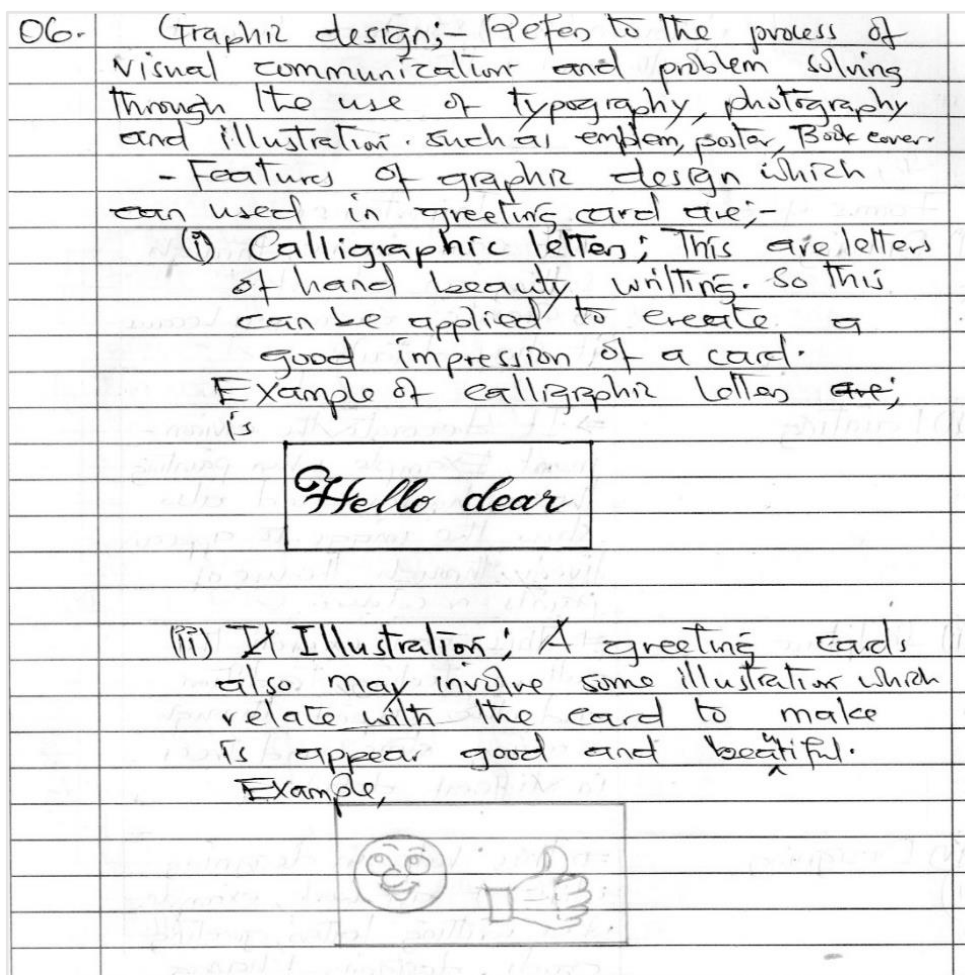 06. Graphic design;- Refers to the process of
visual communication and problem solving
through the use of typography, photography
and illustration. such as emblem, poster, Book cover.
- Features of graphic design which
can used in greeting card are;-
(i) Calligraphic letters; This are letters
of hand beauty writting. so this
can be applied to create a
good impression of a card.
Example of calligraphic letters are;
is
Hello dear
(ii) Illustration; A greeting cards
also may involve some illustration which
relate with the card to make
is appear good and beautiful.
Example,